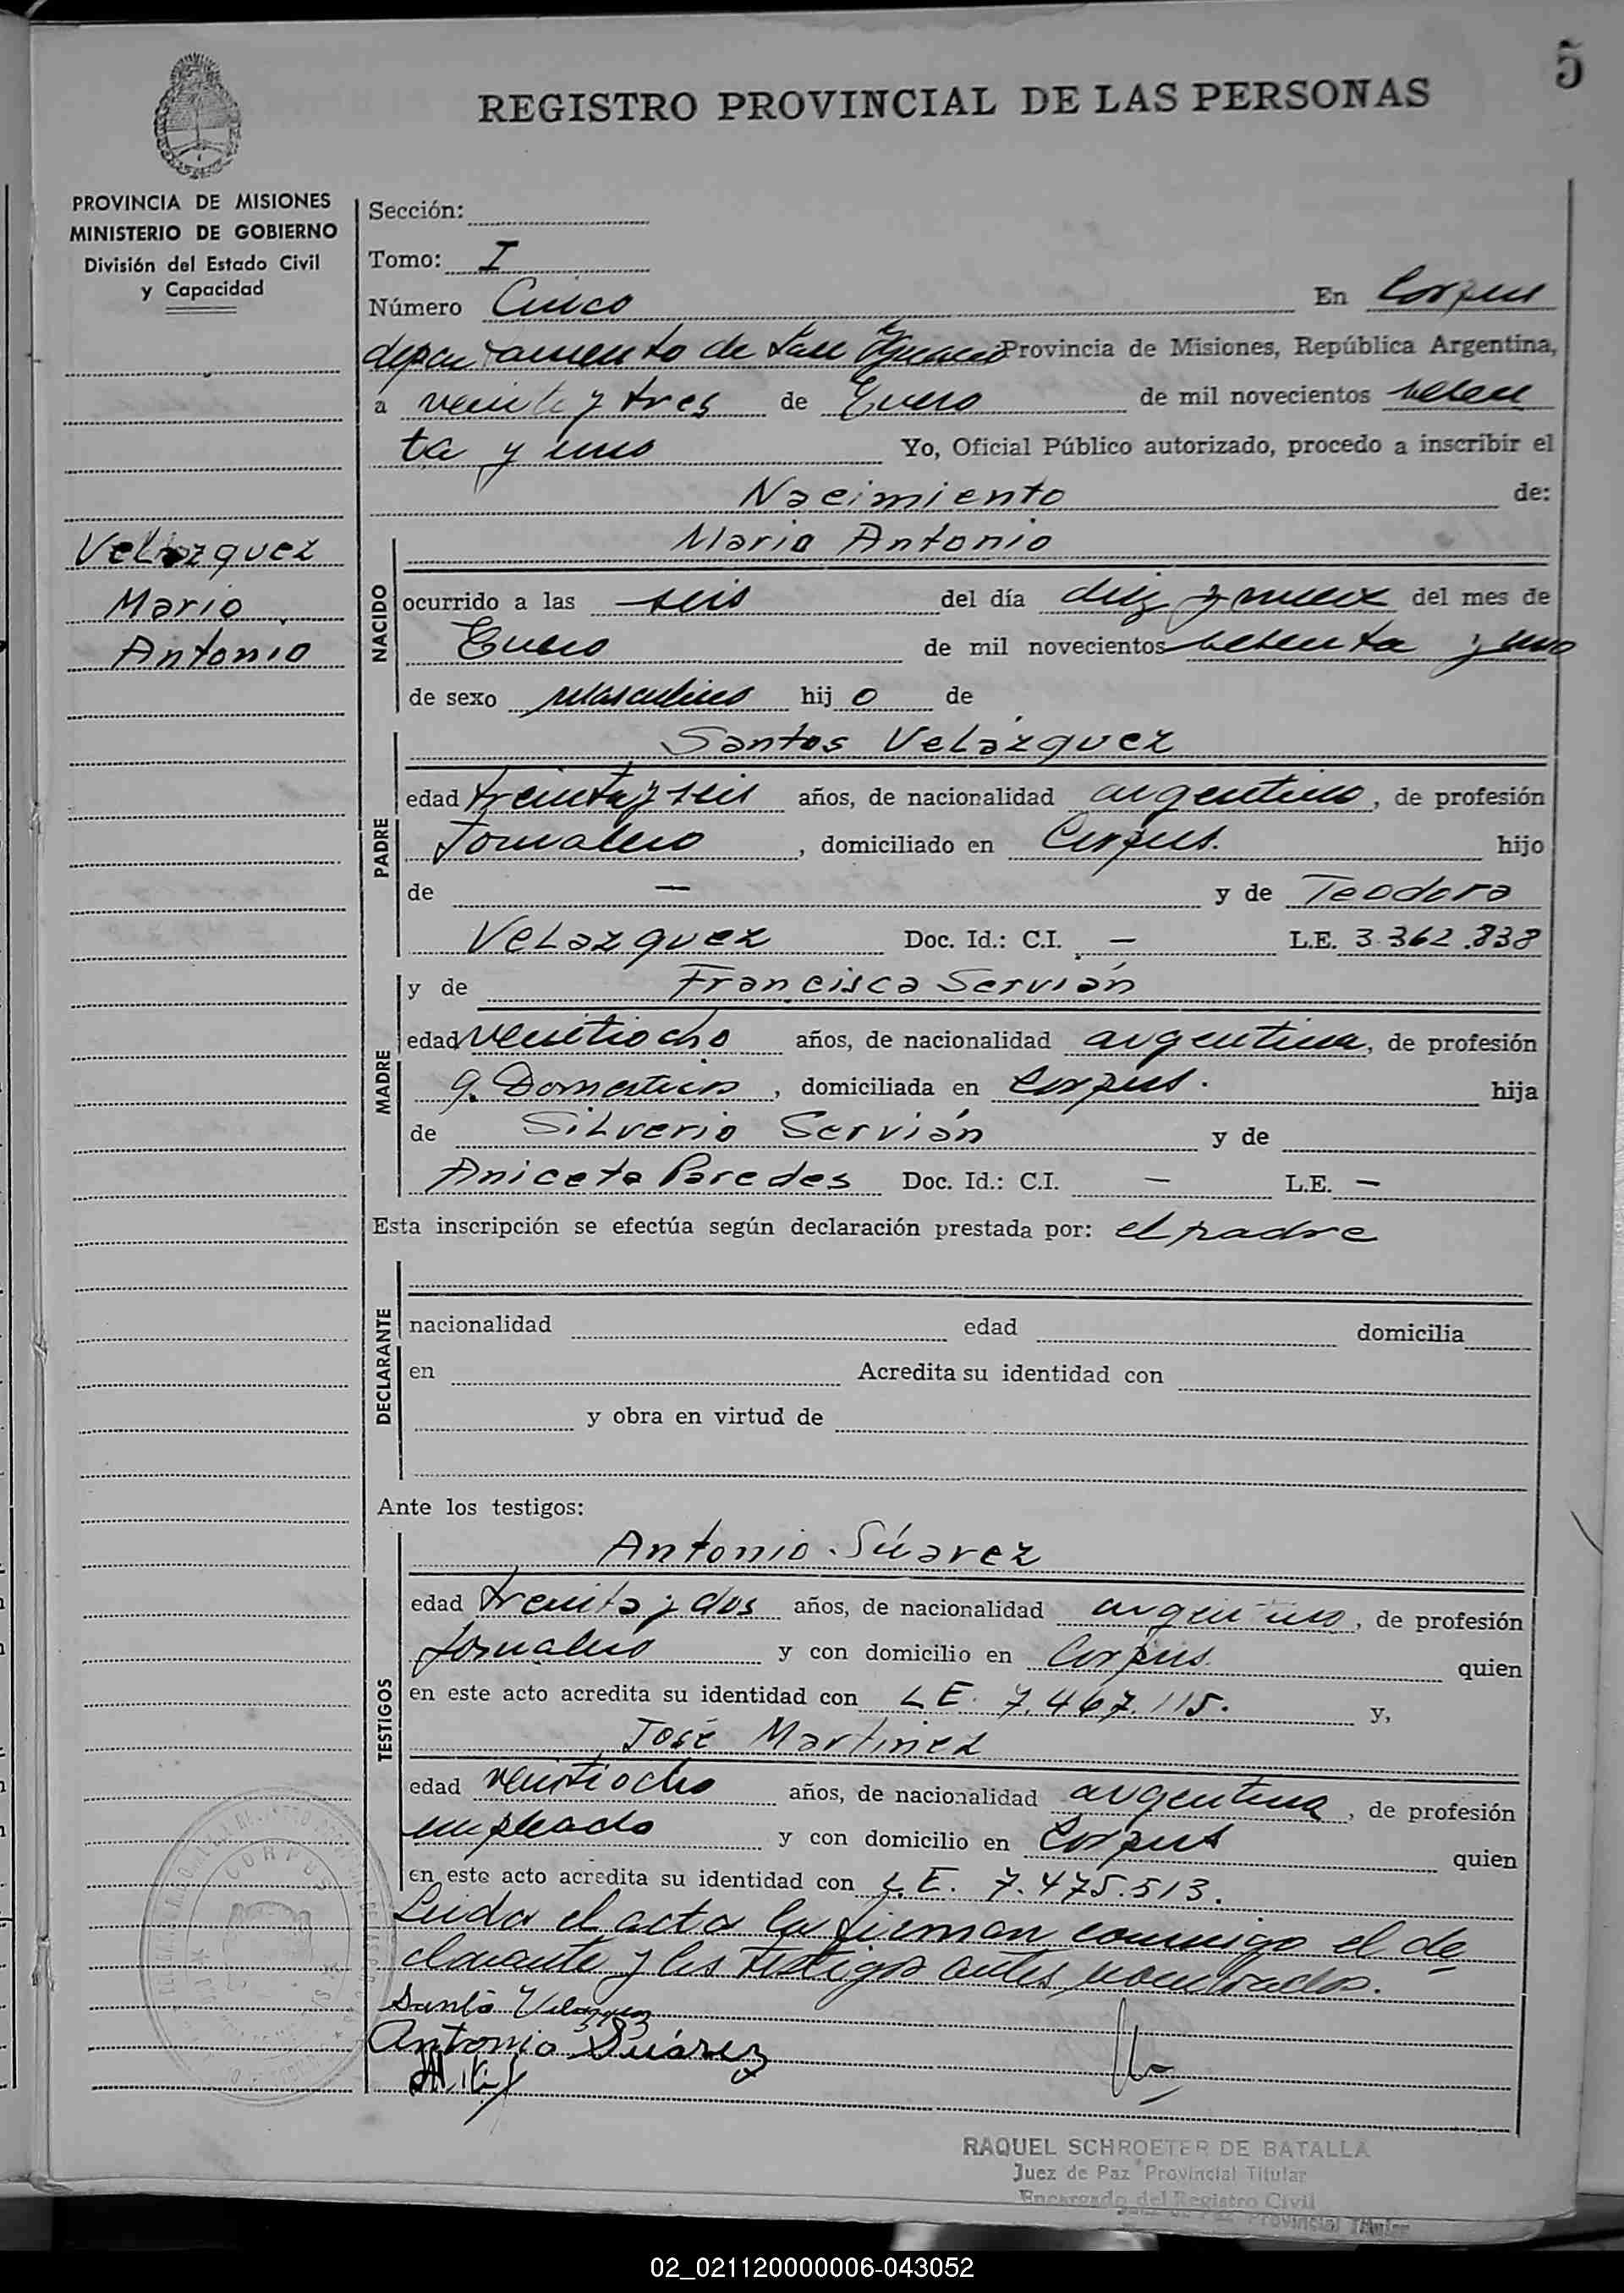 5
REGISTRO PROVINCIAL DE LAS PERSONAS
PROVINCIA DE MISIONES
MINISTERIO DE GOBIERNO
División del Estado Civil
y Capacidad
Velazquez
Mario
Antonio
Sección:
Tomo: I
Número Cinco En Corpus
departamento de San Ignacio Provincia de Misiones, República Argentina,
a veinte y tres de Enero de mil novecientos seten
ta y uno Yo, Oficial Público autorizado, procedo a inscribir el
Nacimiento de:
NACIDO
Mario Antonio
ocurrido a las seis del día diez y nueve del mes de
Enero de mil novecientos setenta y uno
de sexo masculino hijo de
PADRE
Santos Velázquez
edad treinta y seis años, de nacionalidad argentino, de profesión
Jornalero, domiciliado en Corpus. hijo
de — y de Teodora
Velazquez Doc. Id.: C.I. — L.E. 3.362.838
MADRE
y de Francisca Servián
edad veintiocho años, de nacionalidad argentina, de profesión
q. Domesticos, domiciliada en Corpus. hija
de Silverio Servián y de
Aniceta Paredes Doc. Id.: C.I. — L.E. —
Esta inscripción se efectúa según declaración prestada por: el padre
DECLARANTE
nacionalidad edad domicilia
en Acredita su identidad con
y obra en virtud de
Ante los testigos:
TESTIGOS
Antonio Súarez
edad treinta y dos años, de nacionalidad argentino, de profesión
Jornalero y con domicilio en Corpus quien
en este acto acredita su identidad con L E. 7.467.115. y,
José Martinez
edad veintiocho años, de nacionalidad argentina, de profesión
empleado y con domicilio en Corpus quien
en este acto acredita su identidad con L.E. 7.475.513.
Leida el acta la firman conmigo el de
clarante y los testigos antes nombrados.
Santo Velazquez
Antonio Suárez
CORPUS
RAQUEL SCHROETER DE BATALLA
Juez de Paz Provincial Titular
Encargado del Registro Civil
Juez de Paz Provincial Titular
02_021120000006-043052